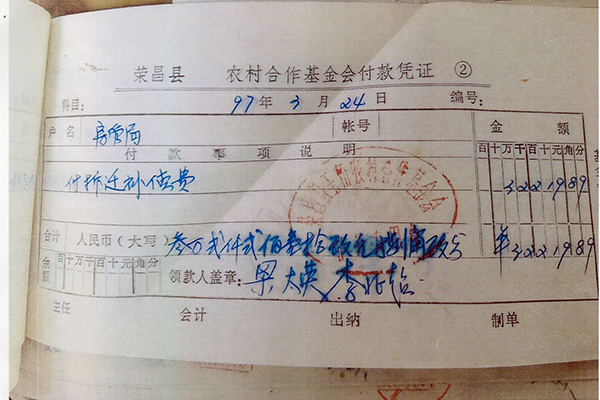 荣昌县 农村合作基金会付款凭证 ②
科目: 97年3月24日 编号:
户名 房管局 帐号 金额
付款事项说明 百十万千百十元角分
付拆迁补偿费 3221989
合计 人民币(大写) 叁万贰仟贰佰壹拾玖元捌角玖分 ¥3221989
余额 百十万千百十元角分 领款人盖章: 梁大英 李
主任 会计 出纳 制单